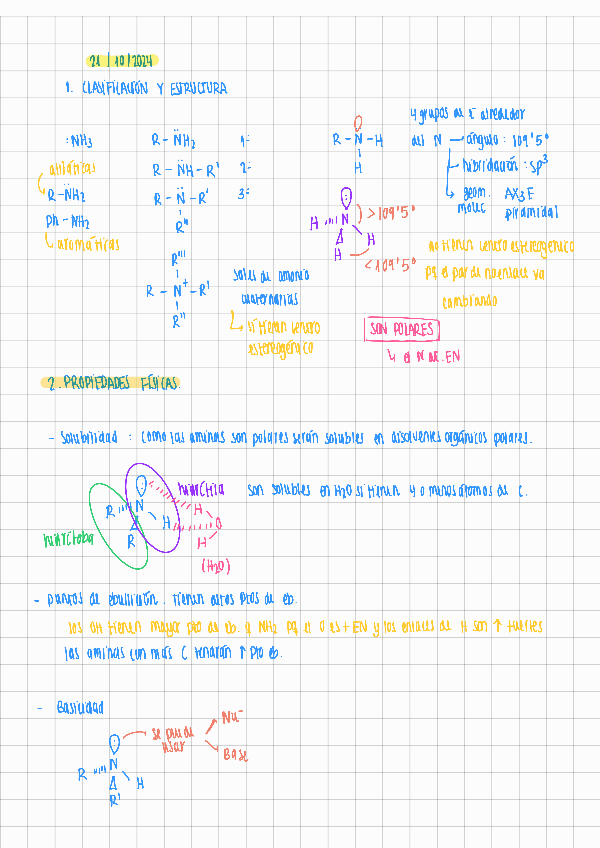 21/10/2024
1. CLASIFICACIÓN Y ESTRUCTURA
:NH3
alifáticas
R-N̈H2
Ph-NH2
aromáticas
R-N̈H2 1º
R-N̈H-R' 2º
R-N̈-R' 3º
R''
R'''
R-N⁺-R'
R''
sales de amonio
cuaternarias
↳ sí tienen centro
estereogénico
R-N-H
H
4 grupos de e⁻ alrededor
del N → ángulo: 109'5º
→ hibridación: sp³
↳ geom. molec AX3E piramidal
H N H H
>109'5º
<109'5º
no tienen centro estereogénico
pq el par de no enlace va
cambiando
SON POLARES
↳ el N
2. PROPIEDADES FÍSICAS.
- Solubilidad: como las aminas son polares serán solubles en disolventes orgánicos polares.
hidrófila
hidrófoba
R N H R
H O H
(H2O)
son solubles en H2O si tienen 4 o menos átomos de C.
- puntos de ebullición. tienen altos ptos de eb.
los OH tienen mayor pto de eb. q NH2 pq el O es + EN y los enlaces de H son ↑ fuertes
las aminas con más C tendrán ↑ pto eb.
- Basicidad
R N H R'
se puede
usar
Nu⁻
Base